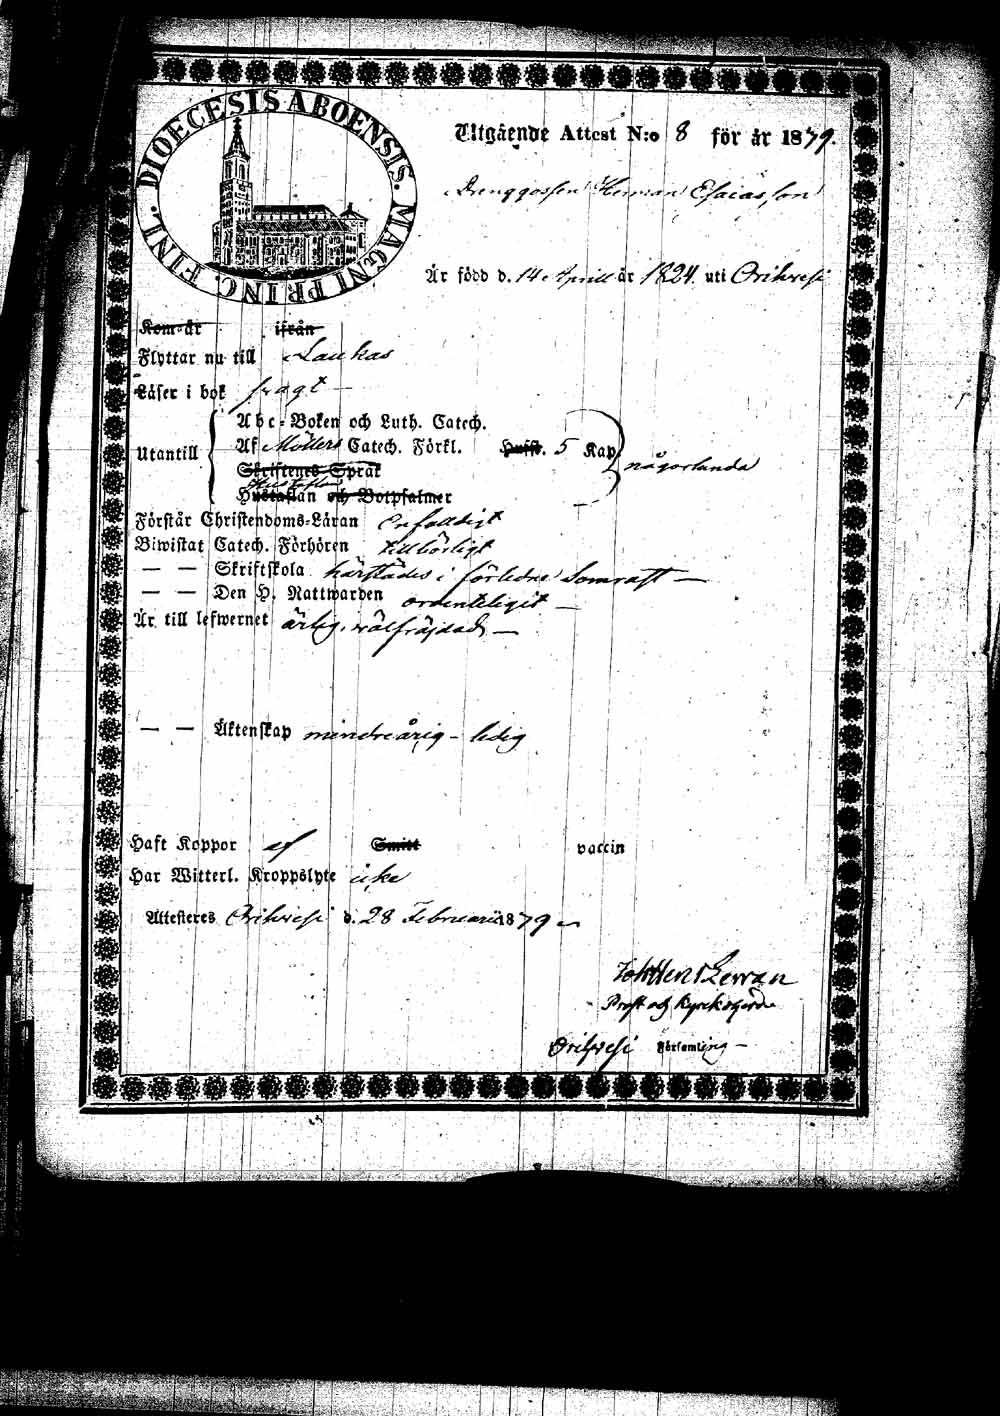 DIOECESIS ABOENSIS. MAGNI PRINC. FINL.
Utgående Attest N:o 8 för år 1879.
Drenggossen Herman Esaiasson
Är född d. 14 Aprill år 1824 uti Orihvesi
Kom år ifrån
Flyttar nu till Laukas
Läser i bok fragt —
Utantill
Abc-Boken och Luth. Catech.
Af Möllers Catech. Förkl. Hufst. 5 Kap
Skriftenes Språk
någorlunda
Hustaflan och Botpsalmer
Förstår Christendoms-Läran enfalldigt
Biwistat Catech. Förhören tillbörligt
— — Skriftskola härstädes i förledne Somras —
— — Den H. Nattwarden ordenteligit —
Är till lefwernet ärlig, wälfräjdad —
— — Äktenskap minderårig - ledig
Haft Koppor af Smitt vaccin
Har Witterl. Kroppslyte icke
Attesteres Orihvesi d. 28 Februarii 1879
Prost och Kyrkoherde
Orihvesi Församling —